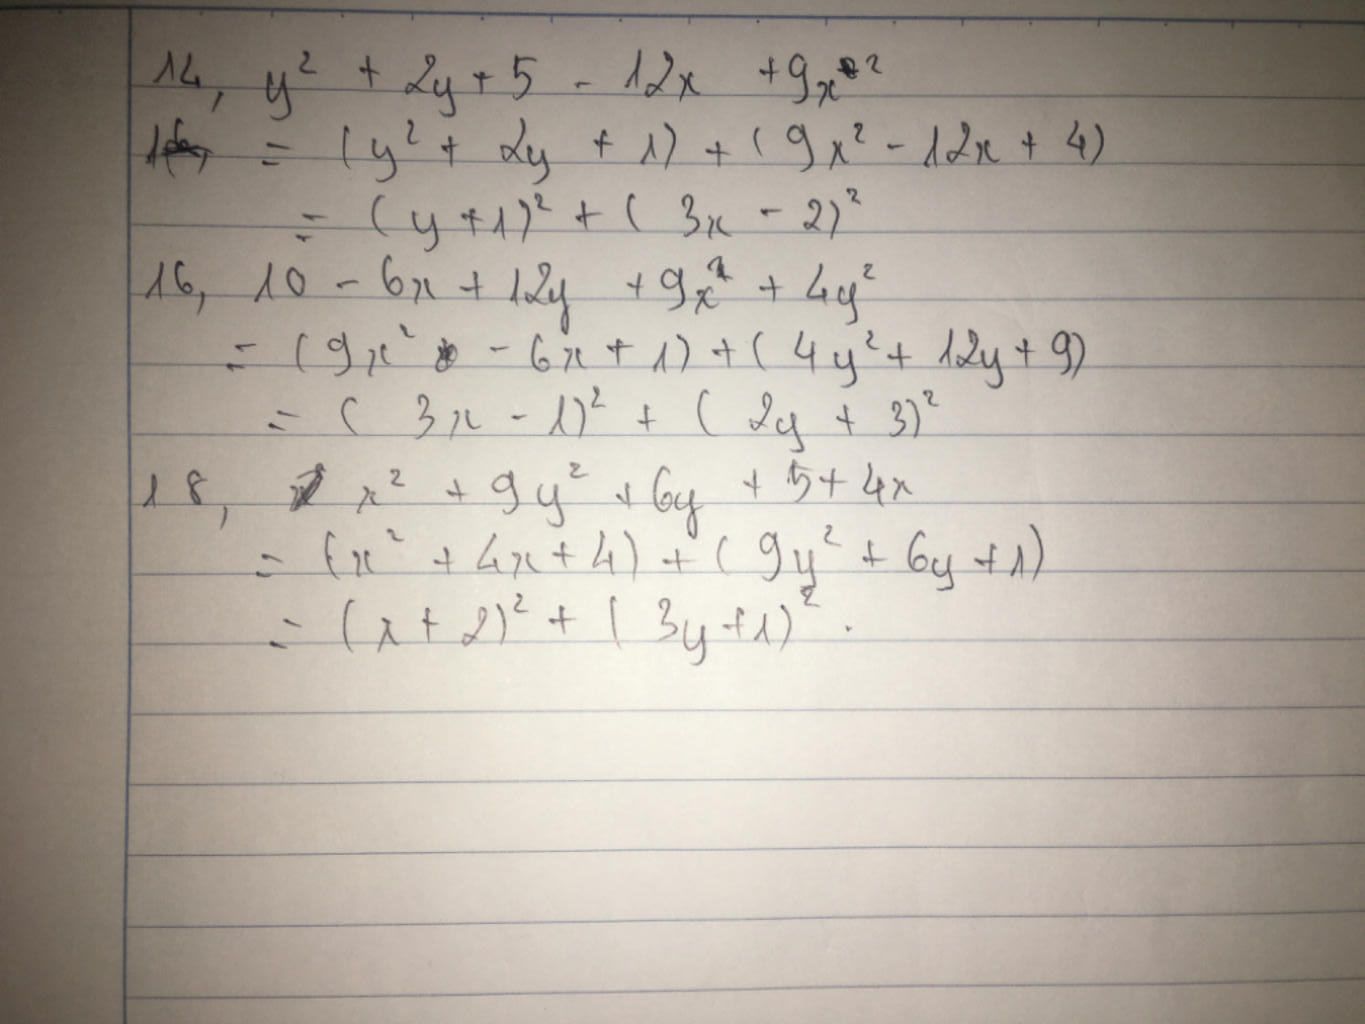 14, y² + 2y + 5 - 12x + 9x²
= (y² + 2y + 1) + (9x² - 12x + 4)
= (y + 1)² + (3x - 2)²
16, 10 - 6x + 12y + 9x² + 4y²
= (9x² - 6x + 1) + (4y² + 12y + 9)
= (3x - 1)² + (2y + 3)²
18, x² + 9y² + 6y + 5 + 4x
= (x² + 4x + 4) + (9y² + 6y + 1)
= (x + 2)² + (3y + 1)².